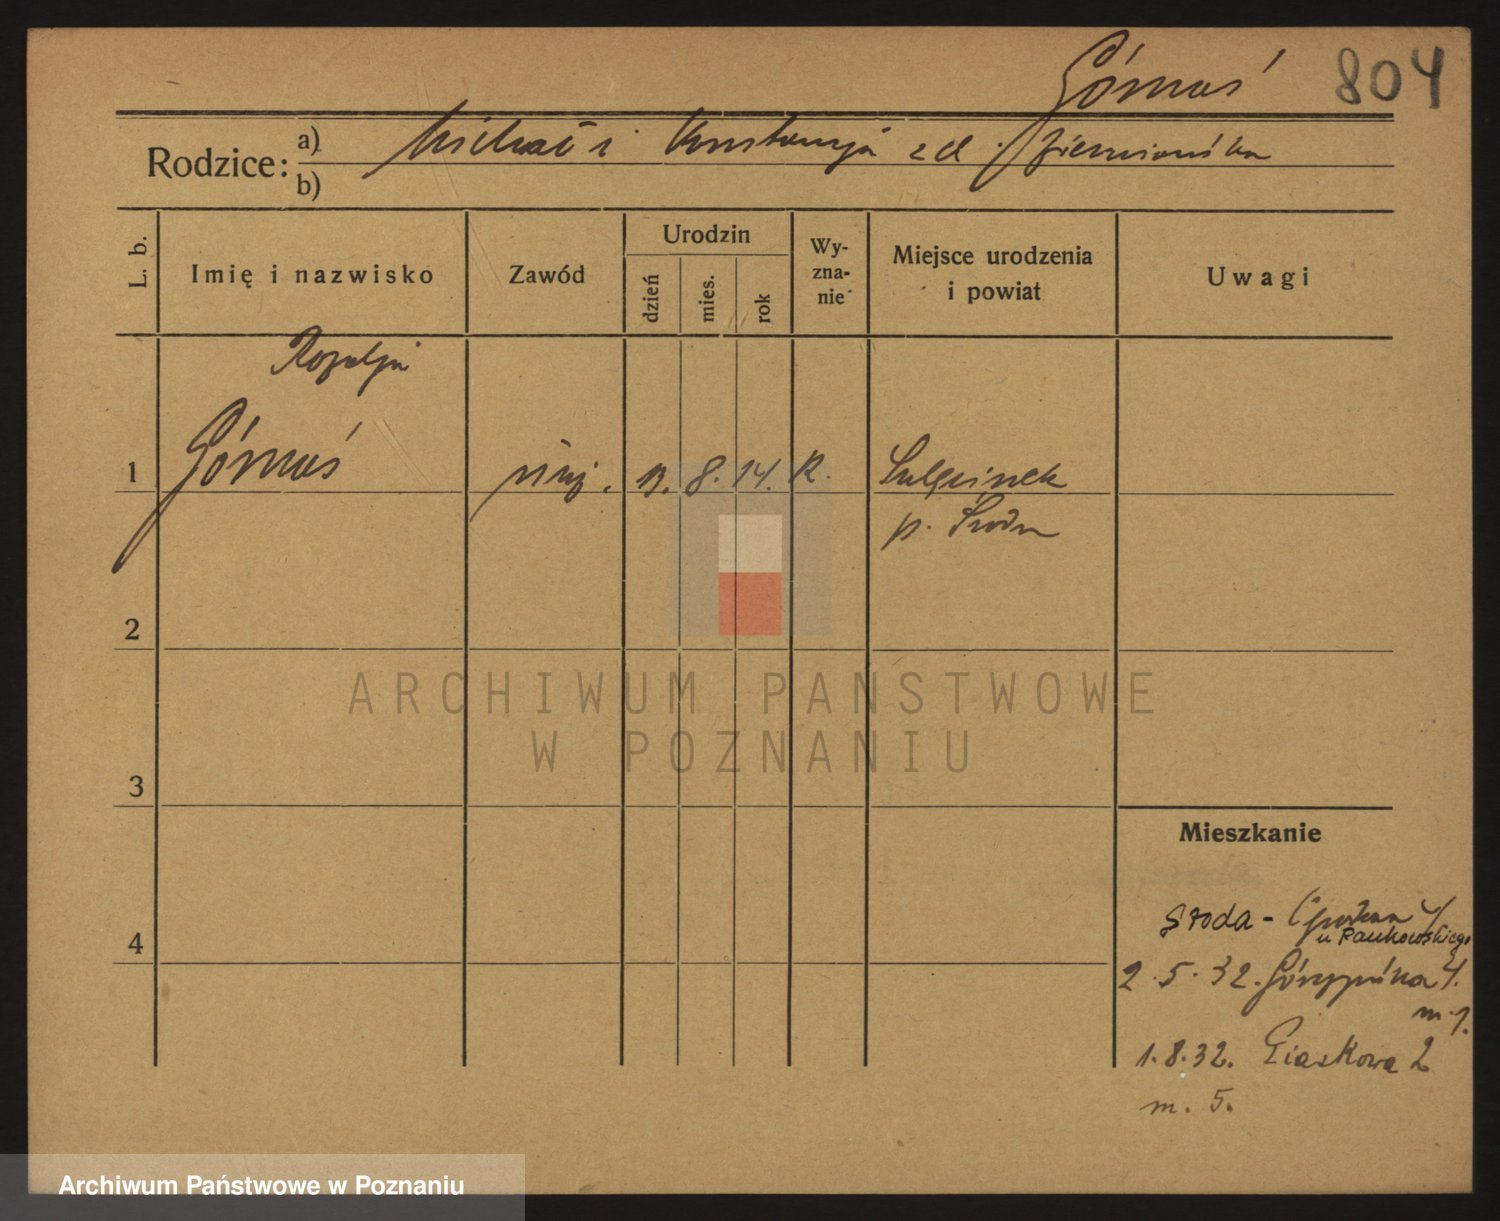 Górnaś 804
Rodzice: a) Michał i Konstancja z d. Ziemiańska
b)
L. b. Imię i nazwisko Zawód Urodzin dzień mies. rok Wyznanie Miejsce urodzenia i powiat Uwagi
Rozalja
1 Górnaś 13. 8. 14. R. Sulęcinek
p. Środa
2
ARCHIWUM PAŃSTWOWE
W POZNANIU
3
Mieszkanie
4
Środa -
u
2.5.32. 4.
m. 1.
1.8.32. Piaskowa 2
m. 5.
Archiwum Państwowe w Poznaniu